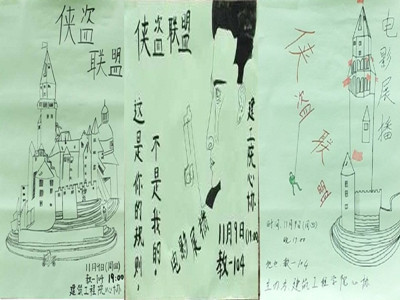 侠盗
联盟
11月9日(周四)
教-104 19:00
建筑工程院心协
侠盗联盟
这是你的规则!
不是我的!
电影展播
建工院心协
11月9日(19:00)
教-104
电影展播
侠盗联盟
时间:11月9日(周四)
晚19:00
地点:教-104
主办方:建筑工程学院心协